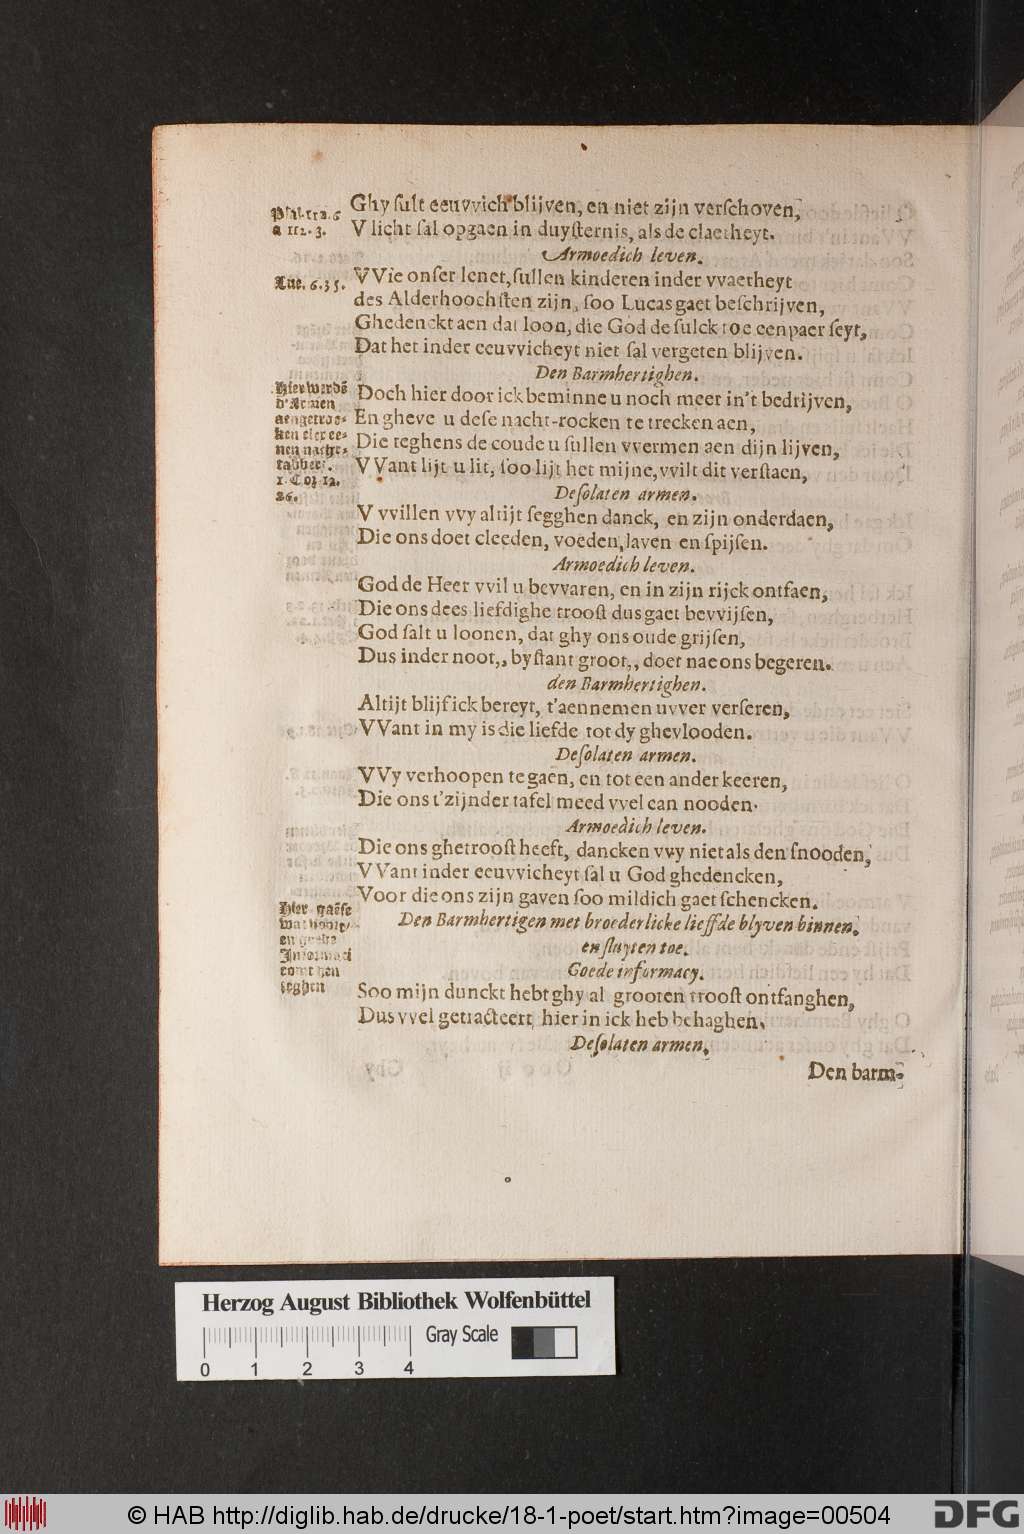 Psal. 112. 6
a 112. 3.
Ghy sult eeuvvich blijven, en niet zijn verschoven,
V licht sal opgaen in duysternis, als de claerheyt.
Armoedich leven.
Luc. 6. 35.
VVie onser lenet, sullen kinderen inder vvaerheyt
des Alderhoochsten zijn, soo Lucas gaet beschrijven,
Ghedenckt aen dat loon, die God de sulck toe eenpaer seyt,
Dat het inder eeuvvicheyt niet sal vergeten blijven.
Den Barmhertighen.
Hier werdē
d'Armen
aengetroc-
ken elck ee-
nen nacht-
tabbert.
1. Cor 12.
26.
Doch hier door ick beminne u noch meer in't bedrijven,
En gheve u dese nacht-rocken te trecken aen,
Die teghens de coude u sullen vvermen aen dijn lijven,
VVant lijt u lit, soo lijt het mijne, vvilt dit verstaen,
Desolaten armen.
V vvillen vvy altijt segghen danck, en zijn onderdaen,
Die ons doet cleeden, voeden, laven en spijsen.
Armoedich leven.
God de Heer vvil u bevvaren, en in zijn rijck ontfaen,
Die ons dees liefdighe troost dus gaet bevvijsen,
God salt u loonen, dat ghy ons oude grijsen,
Dus inder noot,, bystant groot,, doet nae ons begeren.
den Barmhertighen.
Altijt blijf ick bereyt, t'aennemen uvver verseren,
VVant in my is die liefde tot dy ghevlooden.
Desolaten armen.
VVy verhoopen te gaen, en tot een ander keeren,
Die ons t'zijnder tafel meed vvel can nooden.
Armoedich leven.
Die ons ghetroost heeft, dancken vvy niet als den snooden,
VVant inder eeuvvicheyt sal u God ghedencken,
Voor die ons zijn gaven soo mildich gaet schencken.
Hier gaēse
wat
en
Informaci
comt hen
teghen
Den Barmhertigen met broederlicke lieffde blyven binnen,
en sluyten toe.
Goede informacy.
Soo mijn dunckt hebt ghy al grooten troost ontfanghen,
Dus vvel getracteert, hier in ick heb behaghen.
Desolaten armen,
Den barm-
Herzog August Bibliothek Wolfenbüttel
0 1 2 3 4
Gray Scale
© HAB http://diglib.hab.de/drucke/18-1-poet/start.htm?image=00504
DFG